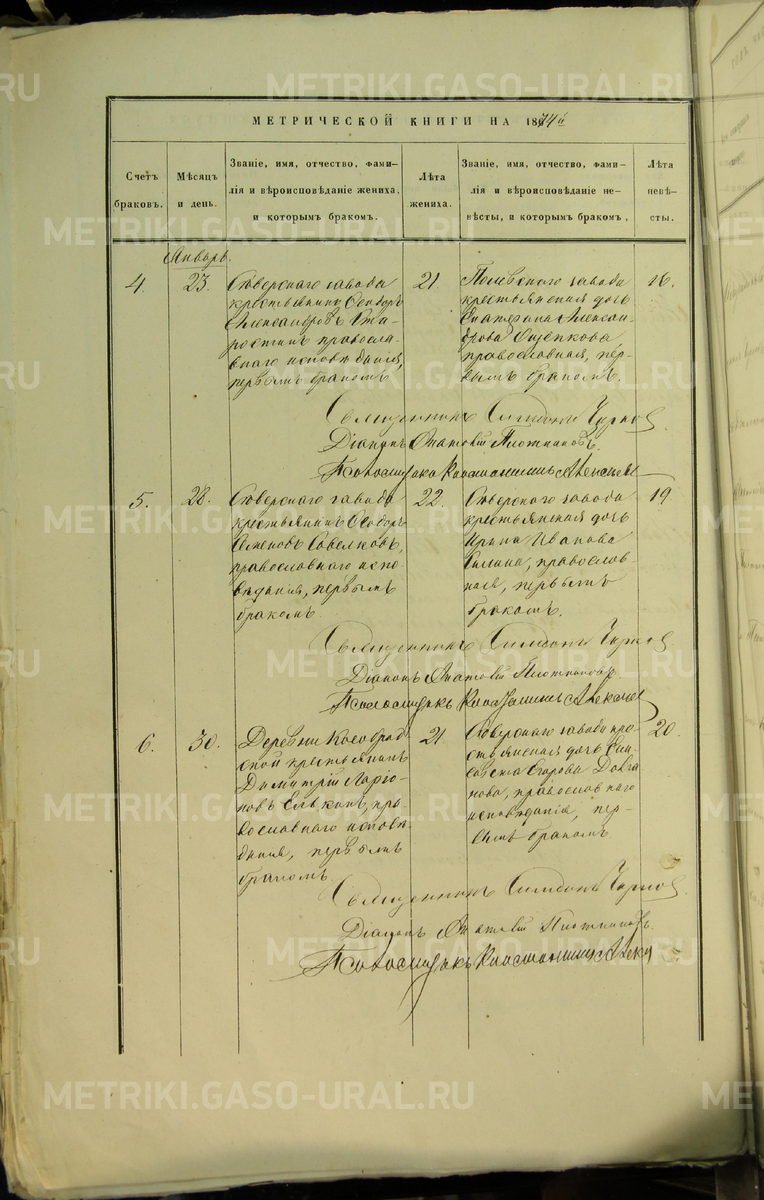 МЕТРИЧЕСКОЙ КНИГИ НА 1874й
Счетъ браковъ.
Мѣсяцъ и день.
Званіе, имя, отчество, фами-
лія и вѣроисповѣданіе жениха,
и которымъ бракомъ.
Лѣта жениха.
Званіе, имя, отчество, фами-
лія и вѣроисповѣданіе не-
вѣсты, и которымъ бракомъ,
Лѣта невѣ-
сты.
Январь.
4.
23.
Сѣверскаго завода
крестьянинъ Ѳеодоръ
Александровъ
православ-
наго исповѣданія,
первымъ бракомъ
21
Полевскаго завода
крестьянская дочь
Екатерина Алексан-
дрова Ощепкова,
православная, пер-
вымъ бракомъ.
16.
Священникъ Симеонъ
Діаконъ Плотниковъ.
Псаломщикъ Константинъ
5.
28.
Сѣверскаго завода
крестьянинъ Ѳеодоръ
Семеновъ Савелковъ,
православнаго испо-
вѣданія, первымъ
бракомъ
22.
Сѣверскаго завода
крестьянская дочь
Ирина Иванова
православ-
ная, первымъ
бракомъ.
19
Священникъ Симеонъ
Діаконъ Плотниковъ
Псаломщикъ Константинъ
6.
30.
Деревни Кособрод-
ской крестьянинъ
Димитрій Ларіо-
новъ Елькинъ, пра-
вославнаго исповѣ-
данія, первымъ
бракомъ.
21
Сѣверскаго завода кре-
стьянская дочь
Егорова Долга-
нова, православнаго
исповѣданія, пер-
вымъ бракомъ
20.
Священникъ Симеонъ
Діаконъ Плотниковъ.
Псаломщикъ Константинъ
METRIKI.GASO-URAL.RU